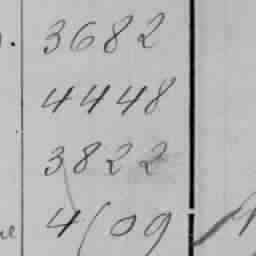 3682
4448
3822
4109